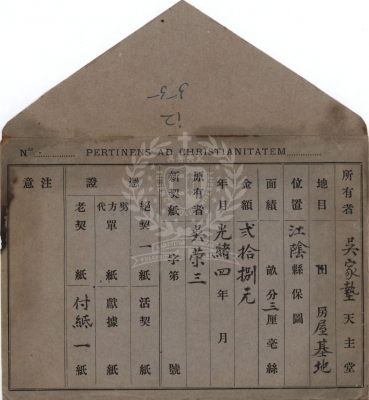 3-5
12
Nº ............ PERTINENS AD CHRISTIANITATEM ............
所有者 吳家塾 天主堂
地目 田 房屋基地
位置 江陰縣保圖
面積 畝分三厘毫絲
金額 弍拾捌元
年月日 光緒四年 月
原有者 吳榮三
領契紙 字第 號
證憑
絕契一紙 活契 紙
勞方代單 紙 獻據 紙
老契 紙 付紙一紙
注意